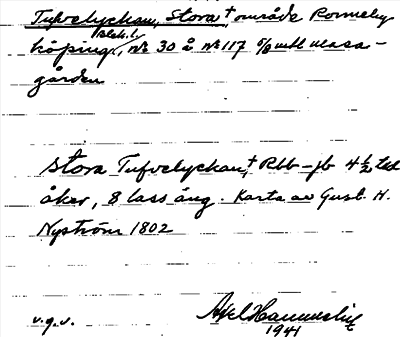 Tufvelyckan, Stora † område Ronneby
köping, Blek. l., № 30 å № 117 % utl mosa-
gården
Stora Tufvelyckan, † Rbb-jb 4 ½ tld
åker, 8 lass äng. Karta av Gust. H.
Nyström 1802
v.g.v.
Axel
1941